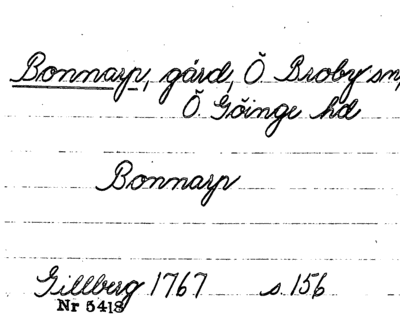 Bonnarp, gård, Ö Broby sn,
Ö Göinge hd
Bonnarp
Gillberg 1767 s. 156
Nr 5418